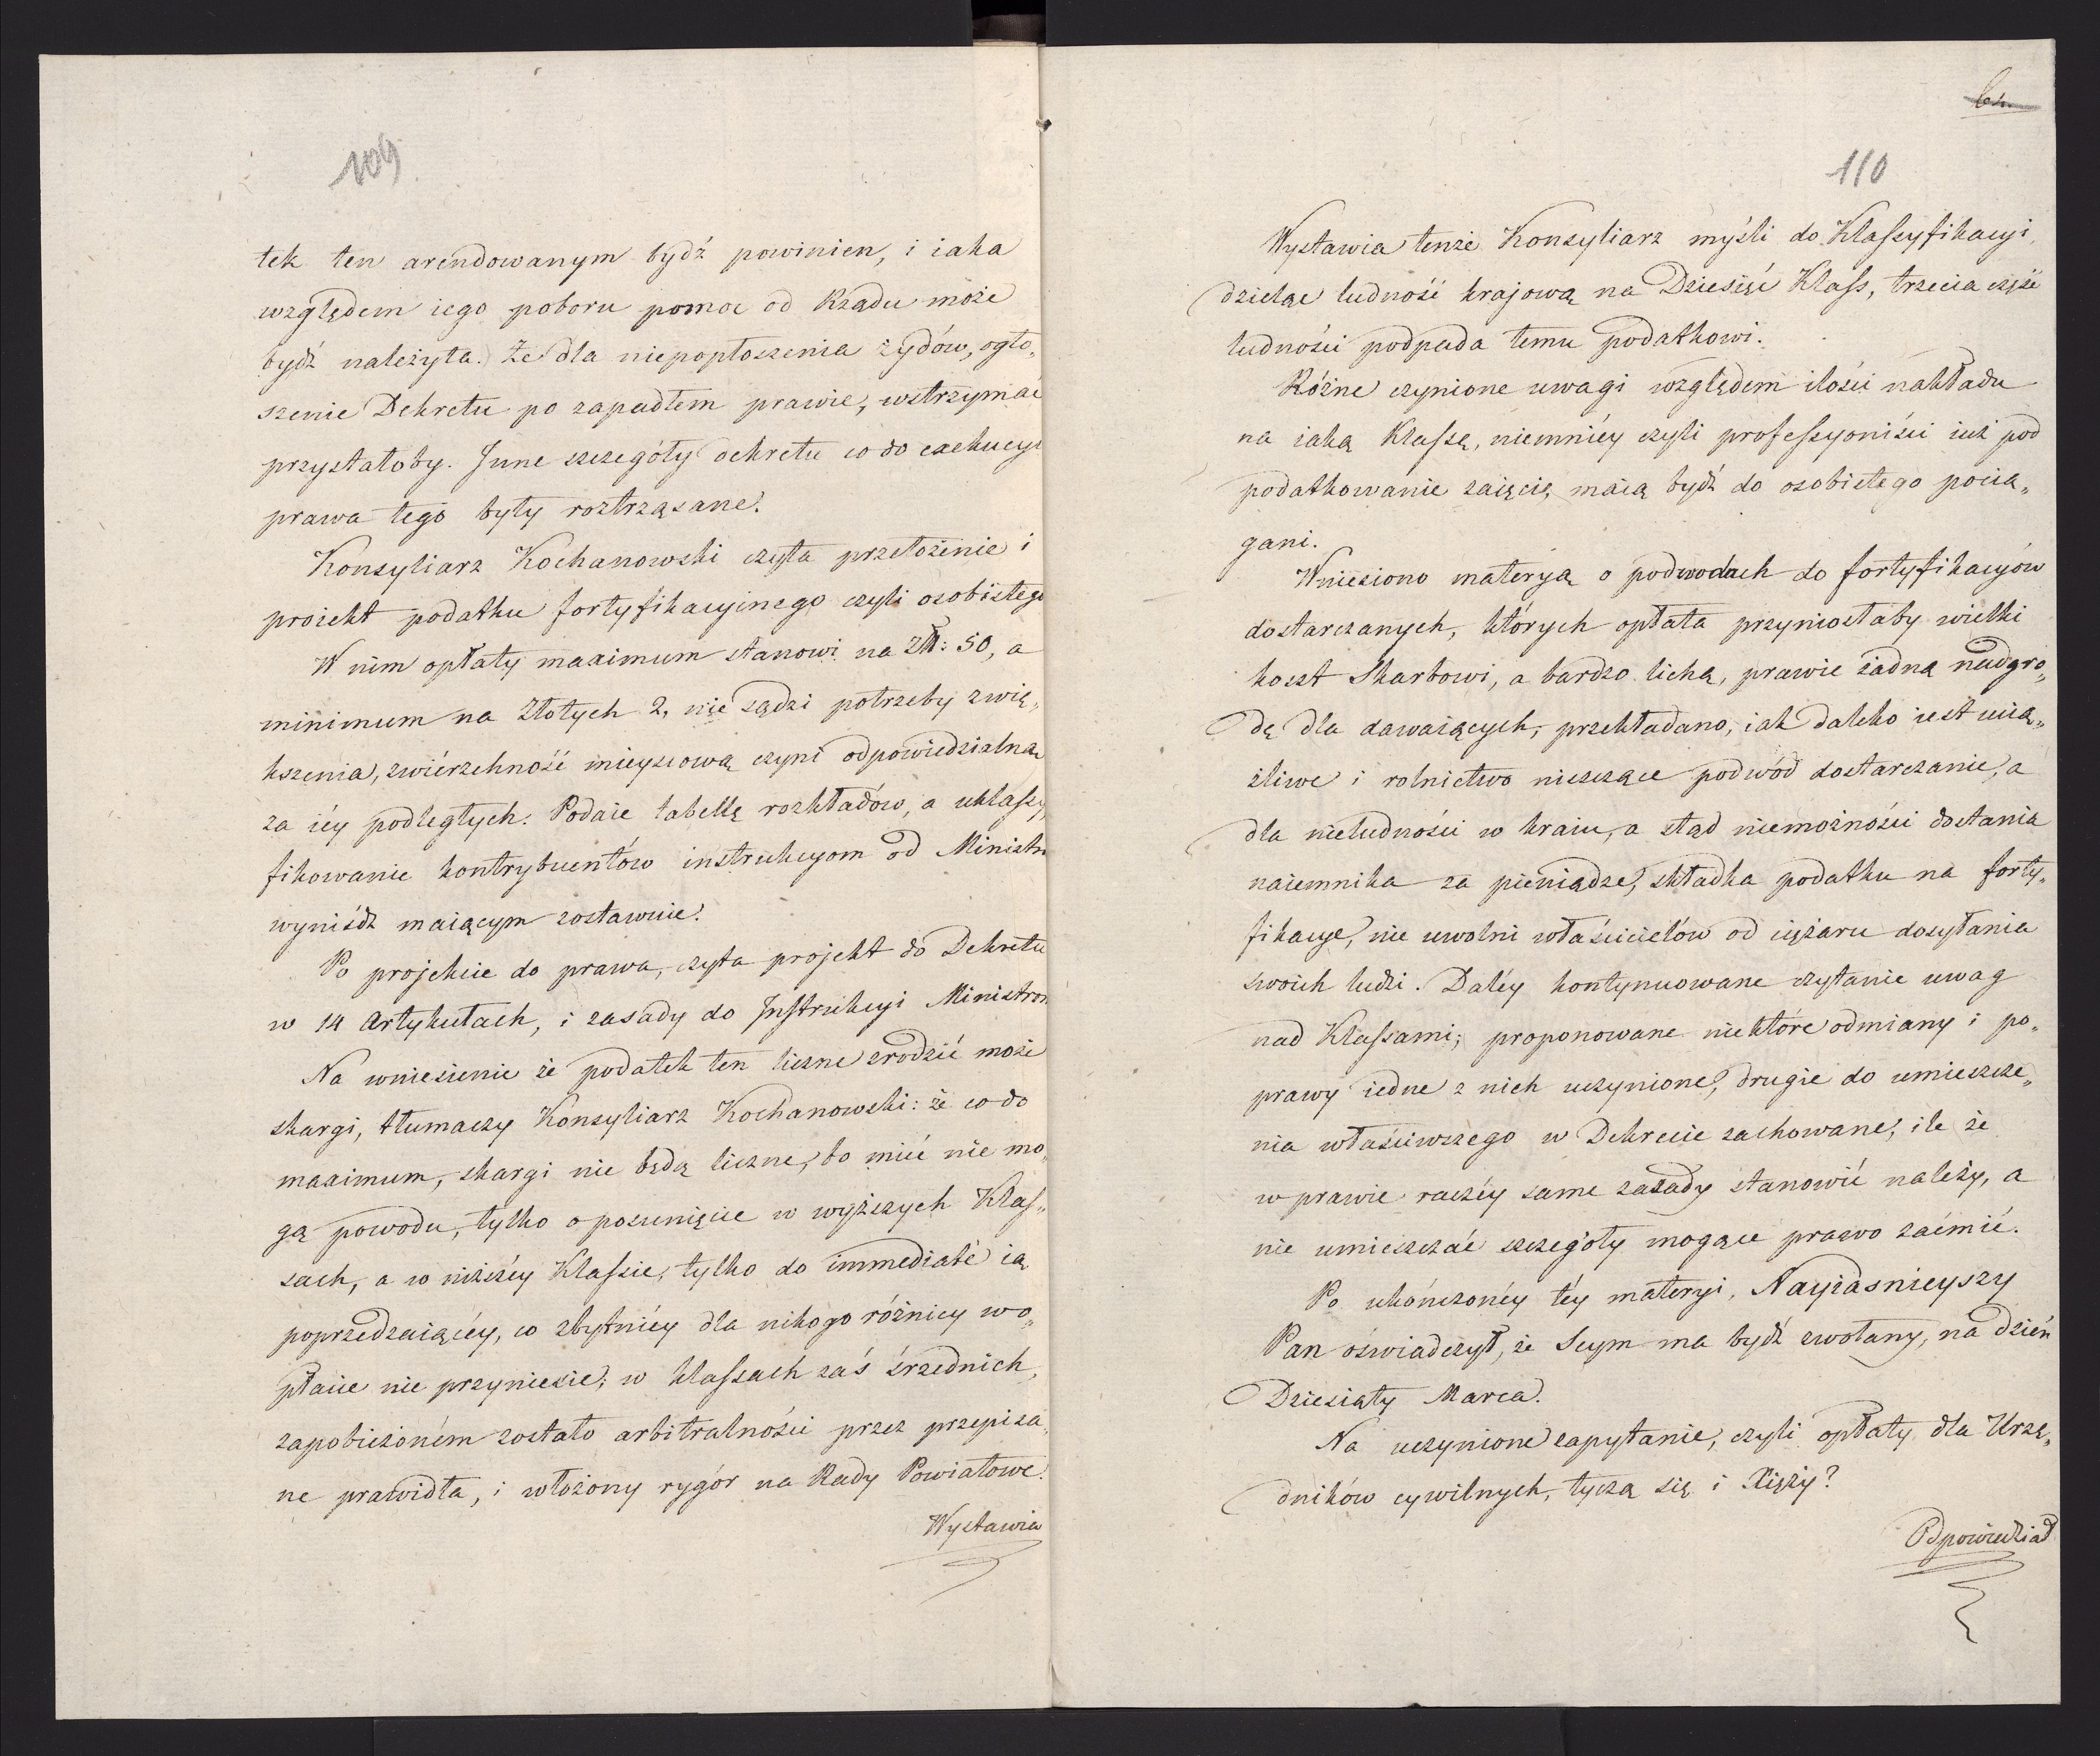 109
tek ten arendowanym bydź powinien, i iaka
względem iego poboru pomoc od Rządu może
bydź należyta. Że dla niepopłoszenia żydów, ogło„
szenie Dekretu po zapadłem prawie, wstrzymać
przystałoby. Inne szczegóły dekretu co do exekucyi
prawa tego były roztrząsane.
Konsyliarz Kochanowski czyta przełożenie i
proiekt podatku fortyfikacyinego czyli osobistego
W nim opłaty maximum stanowi na Zł: 50, a
minimum na Złotych 2, nie sądzi potrzeby zwię„
kszenia, zwierzchność mieyscową czyni odpowiedzialną
za iéy podległych. Podaie tabellę rozkładów, a uklassy„
fikowanie kontrybuentów instrukcyom od Ministra
wyniśdź maiącym zostawuie.
Po projekcie do prawa, czyta projekt do Dekretu
w 14 Artykułach, i zasady do Instrukcyi Ministrom
Na wniesienie że podatek ten liczne zrodzić może
skargi, tłumaczy Konsyliarz Kochanowski: że co do
maximum, skargi nie będą liczne, bo mieć nie mo„
gą powodu, tylko o posunięcie w wyższych Klas„
sach, a w niższéy Klassie, tylko do immediaté ią
poprzedzaiącéy, co zbytniéy dla nikogo różnicy w o„
płacie nie przyniesie; w klassach zaś śrzednich,
zapobieżoném zostało arbitralności przez przepisa„
ne prawidła, i włożony rygór na Rady Powiatowe.
Wystawia
110
Wystawia tenże Konsyliarz myśli do Klassyfikacyi,
dzieląc ludność krajową na Dziesięć Klass, trzecia część
ludności podpada temu podatkowi.
Różne czynione uwagi względem ilości nakładu
na iaką Klassę, niemniéy czyli professyoniści iuż pod
podatkowanie zaięci, maią bydź do osobistego pocią„
gani.
Wniesiono materyą o podwodach do fortyfikacyów
dostarczanych, których opłata przyniosłaby wielki
koszt Skarbowi, a bardzo lichą, prawie żadną nadgro„
dę dla dawaiących, przekładano, iak daleko iest ucią„
żliwe i rolnictwo niszczące podwód dostarczanie, a
dla nieludności w kraiu, a stąd niemożności dostania
naiemnika za pieniądze, składka podatku na forty„
fikacye, nie uwolni właścicielów od ciężaru dosyłania
swoich ludzi. Daléy kontynuowane czytanie uwag
nad Klassami; proponowane niektóre odmiany i po„
prawy iedne z nich uczynione, drugie do umieszcze„
nia właściwszego w Dekrecie zachowane, ile że
w prawie raczéy same zasady stanowić należy, a
nie umieszczać szczegóły mogące prawo zaćmić.
Po ukończonéy téy materyi, Nayiaśnieyszy
Pan oświadczył, że Seym ma bydź zwołany, na dzień
Dziesiąty Marca.
Na uczynione zapytanie, czyli opłaty dla Urzę„
dników cywilnych, tyczą się i Xięży?
Odpowiedział